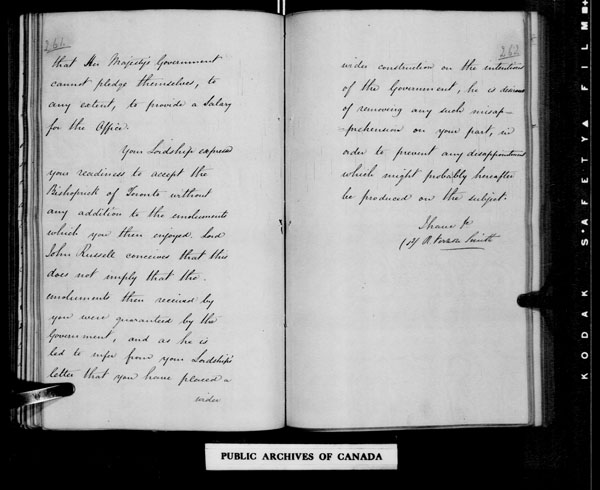 261.
that Her Majesty's Government
cannot pledge themselves, to
any extent, to provide a Salary
for the Office.
Your Lordship expressed
your readiness to accept the
Bishoprick of Toronto without
any addition to the emoluments
which you then enjoyed. Lord
John Russell conceives that this
does not imply that the
emoluments then received by
you were guaranteed by the
Government, and as he is
led to infer from your Lordship's
letter that you have placed a
wider
262
wider construction on the intentions
of the Government, he is desirous
of removing any such misap-
-prehension on your part, in
order to prevent any disappointment
which might probably hereafter
be produced on the subject.
I have &c
R. Vernon Smith
PUBLIC ARCHIVES OF CANADA
KODAK SAFETY FILM